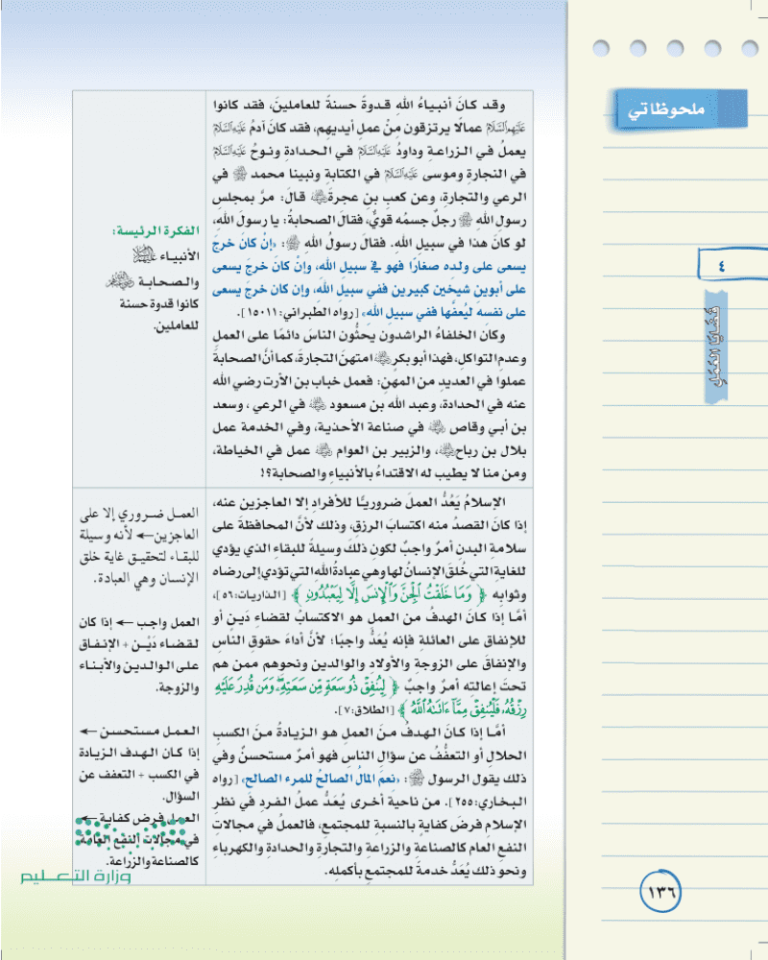 ملحوظاتي
٤
قَضَايَا العَمَلِ
وقد كانَ أنبياءُ اللهِ قدوةً حسنةً للعاملينَ، فقد كانوا
عَلَيْهِمُ السَّلَامُ عمالًا يرتزقون مِنْ عملِ أيديهِم، فقد كانَ آدمُ عَلَيْهِ السَّلَامُ
يعملُ في الزراعةِ وداودُ عَلَيْهِ السَّلَامُ في الحدادةِ ونوحُ عَلَيْهِ السَّلَامُ
في النجارةِ وموسى عَلَيْهِ السَّلَامُ في الكتابةِ ونبينا محمد ﷺ في
الرعي والتجارةِ، وعن كعبِ بنِ عجرةَ رضي الله عنه قالَ: مرَّ بمجلسِ
رسولِ اللهِ ﷺ رجلٌ جسمُه قويٌّ، فقالَ الصحابةُ: يا رسولَ اللهِ،
لو كانَ هذا في سبيلِ اللهِ. فقالَ رسولُ الله ﷺ: «إن كان خرجَ
يسعى على ولدِه صغارًا فهو في سبيلِ اللهِ، وإنْ كانَ خرجَ يسعى
على أبوينِ شيخينِ كبيرين ففي سبيلِ اللهِ، وإن كان خرجَ يسعى
على نفسه ليُعفَّها ففي سبيلِ اللهِ» [رواه الطبراني: ١٥٠١١].
وكانَ الخلفاءُ الراشدون يحثُّون الناسَ دائمًا على العملِ
وعدمِ التواكلِ، فهذا أبو بكرٍ رضي الله عنه امتهنَ التجارةَ، كما أنَّ الصحابةَ
عملوا في العديدِ من المهنِ: فعمل خباب بن الأرت رضي الله
عنه في الحدادة، وعبد الله بن مسعود رضي الله عنه في الرعي، وسعد
بن أبي وقاص رضي الله عنه في صناعة الأحذية، وفي الخدمة عمل
بلال بن رباح رضي الله عنه، والزبير بن العوام رضي الله عنه عمل في الخياطة،
ومن منا لا يطيب له الاقتداءُ بالأنبياءِ والصحابة؟!
الفكرة الرئيسة:
الأنبياء عَلَيْهِمُ السَّلَامُ
والصحابة رضي الله عنهم
كانوا قدوة حسنة
للعاملين.
الإسلامُ يَعُدُّ العملَ ضروريًّا للأفرادِ إلا العاجزين عنه،
إذا كانَ القصدُ منه اكتسابَ الرزقِ، وذلك لأنَّ المحافظةَ على
سلامةِ البدنِ أمرٌ واجبٌ لكونِ ذلكَ وسيلةً للبقاءِ الذي يؤدي
للغايةِ التي خُلقَ الإنسانُ لها وهي عبادةُ اللهِ التي تؤدي إلى رضاه
وثوابِه ﴿ وَمَا خَلَقْتُ ٱلْجِنَّ وَٱلْإِنسَ إِلَّا لِيَعْبُدُونِ ﴾ [الذاريات:٥٦]،
أمَّا إذا كانَ الهدفُ من العملِ هو الاكتسابُ لقضاءِ دَينٍ أو
للإنفاقِ على العائلةِ فإنه يُعَدُّ واجبًا؛ لأنَّ أداءَ حقوقِ الناسِ
والإنفاقَ على الزوجةِ والأولادِ والوالدين ونحوهم ممن هم
تحتَ إعالتِه أمرٌ واجبٌ ﴿ لِيُنفِقْ ذُو سَعَةٍ مِّن سَعَتِهِۦۖ وَمَن قُدِرَ عَلَيْهِ
رِزْقُهُۥ فَلْيُنفِقْ مِمَّآ ءَاتَىٰهُ ٱللَّهُ ﴾ [الطلاق:٧].
أمَّا إذا كانَ الهدفُ منَ العملِ هو الزيادةُ منَ الكسبِ
الحلالِ أو التعفُّفُ عن سؤالِ الناسِ فهو أمرٌ مستحسنٌ وفي
ذلك يقول الرسول ﷺ: «نعمَ المالُ الصالحُ للمرءِ الصالحِ» [رواه
البخاري:٢٥٥]. من ناحيةٍ أخرى يُعَدُّ عملُ الفردِ في نظرِ
الإسلامِ فرضَ كفايةٍ بالنسبةِ للمجتمعِ، فالعملُ في مجالاتِ
النفعِ العام كالصناعةِ والزراعةِ والتجارةِ والحدادةِ والكهرباءِ
ونحوِ ذلك يُعَدُّ خدمةً للمجتمع بأكملِه.
العمل ضروري إلا على
العاجزين ← لأنه وسيلة
للبقاء لتحقيق غاية خلق
الإنسان وهي العبادة.
العمل واجب ← إذا كان
لقضاء دَيْن + الإنفاق
على الوالدين والأبناء
والزوجة.
العمل مستحسن ←
إذا كان الهدف الزيادة
في الكسب + التعفف عن
السؤال.
العمل فرض كفاية ←
في مجالات النفع العامة
كالصناعة والزراعة.
وزارة التعليم
١٣٦